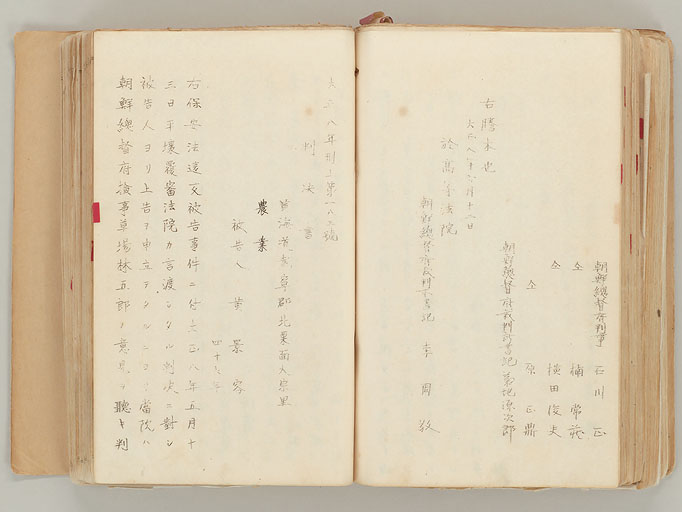 朝鮮總督府判事 石川 正
仝 楠 常藏
仝 横田俊夫
仝 原 正鼎
朝鮮總督府裁判所書記 菊地源次郎
右謄本也
大正八年六月十二日
於高等法院
朝鮮總督府裁判所書記 李 岡
大正八年刑上第一八三號
判決書
黃海道 郡北栗面大 里
農業
被告人 黃景
四十 年
右保安法違反被告事件ニ付大正八年五月十
三日平壤覆審法院カ言渡シタル判決ニ對シ
被告人ヨリ上告ヲ申立テタルニヨリ當院ハ
朝鮮總督府檢事草場林五郎ノ意見ヲ聽キ判